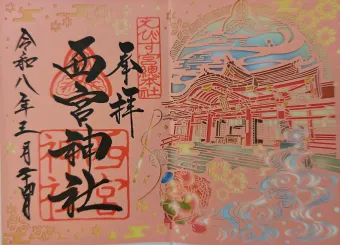 奉拝
えびす宮総本社
西宮神社
西宮
神社
令和八年三月